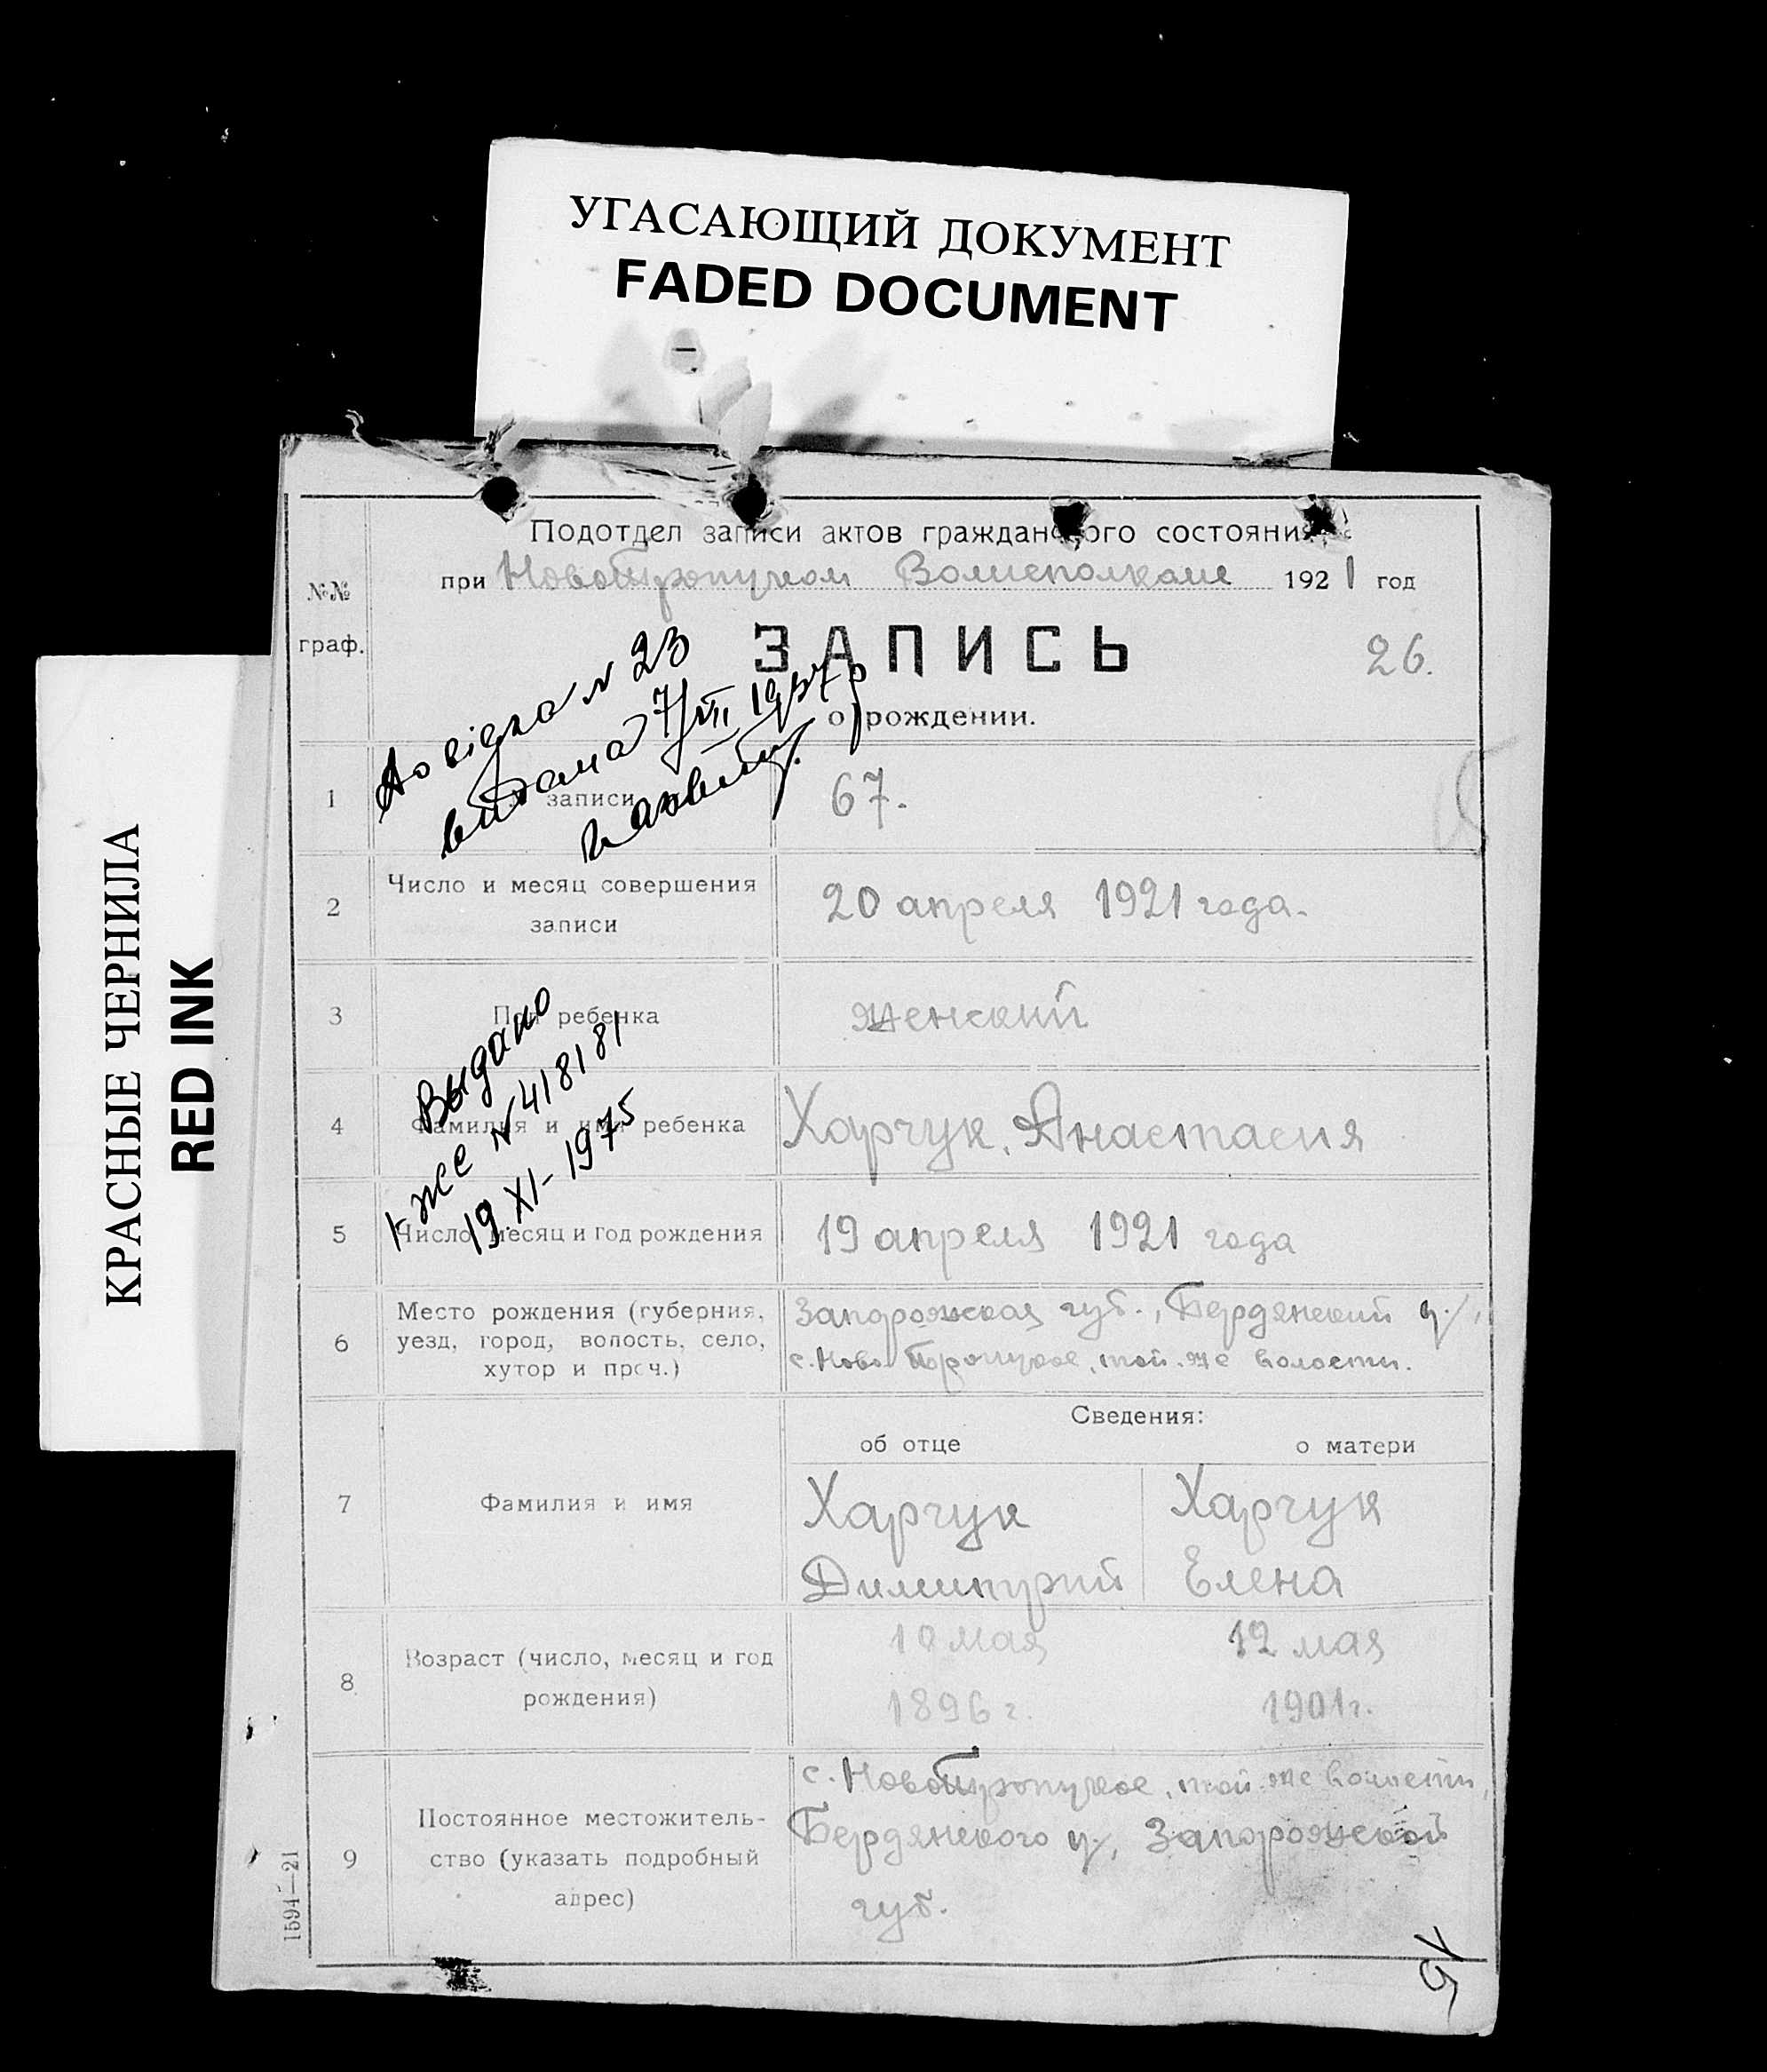 УГАСАЮЩИЙ ДОКУМЕНТ
FADED DOCUMENT
КРАСНЫЕ ЧЕРНИЛА
RED INK
Подотдел записи актов гражданского состояния
при Новотроицком 1921 год
№№
граф.
ЗАПИСЬ
26.
о рождении.
Довідка N 23
видана 7/VII 1957 р
1
записи
67.
2
Число и месяц совершения
записи
20 апреля 1921 года.
3
Пол ребенка
женский
Выдано
N 418181
19 XI-1975
4
Фамилия и имя ребенка
Харчук, Анастасия
5
Число, месяц и год рождения
19 апреля 1921 года
6
Место рождения (губерния,
уезд, город, волость, село,
хутор и проч.)
Запорожская губ., Бердянский у.,
с. Ново Троицкое, той-же волости.
Сведения:
об отце
о матери
7
Фамилия и имя
Харчук
Димитрий
Харчук
Елена
8
Возраст (число, месяц и год
рождения)
мая
1896 г.
12 мая
1901 г.
9
Постоянное местожитель-
ство (указать подробный
адрес)
с. Новотроицкое, той-же волости,
Бердянского у., Запорожской
губ.
1594—21
15